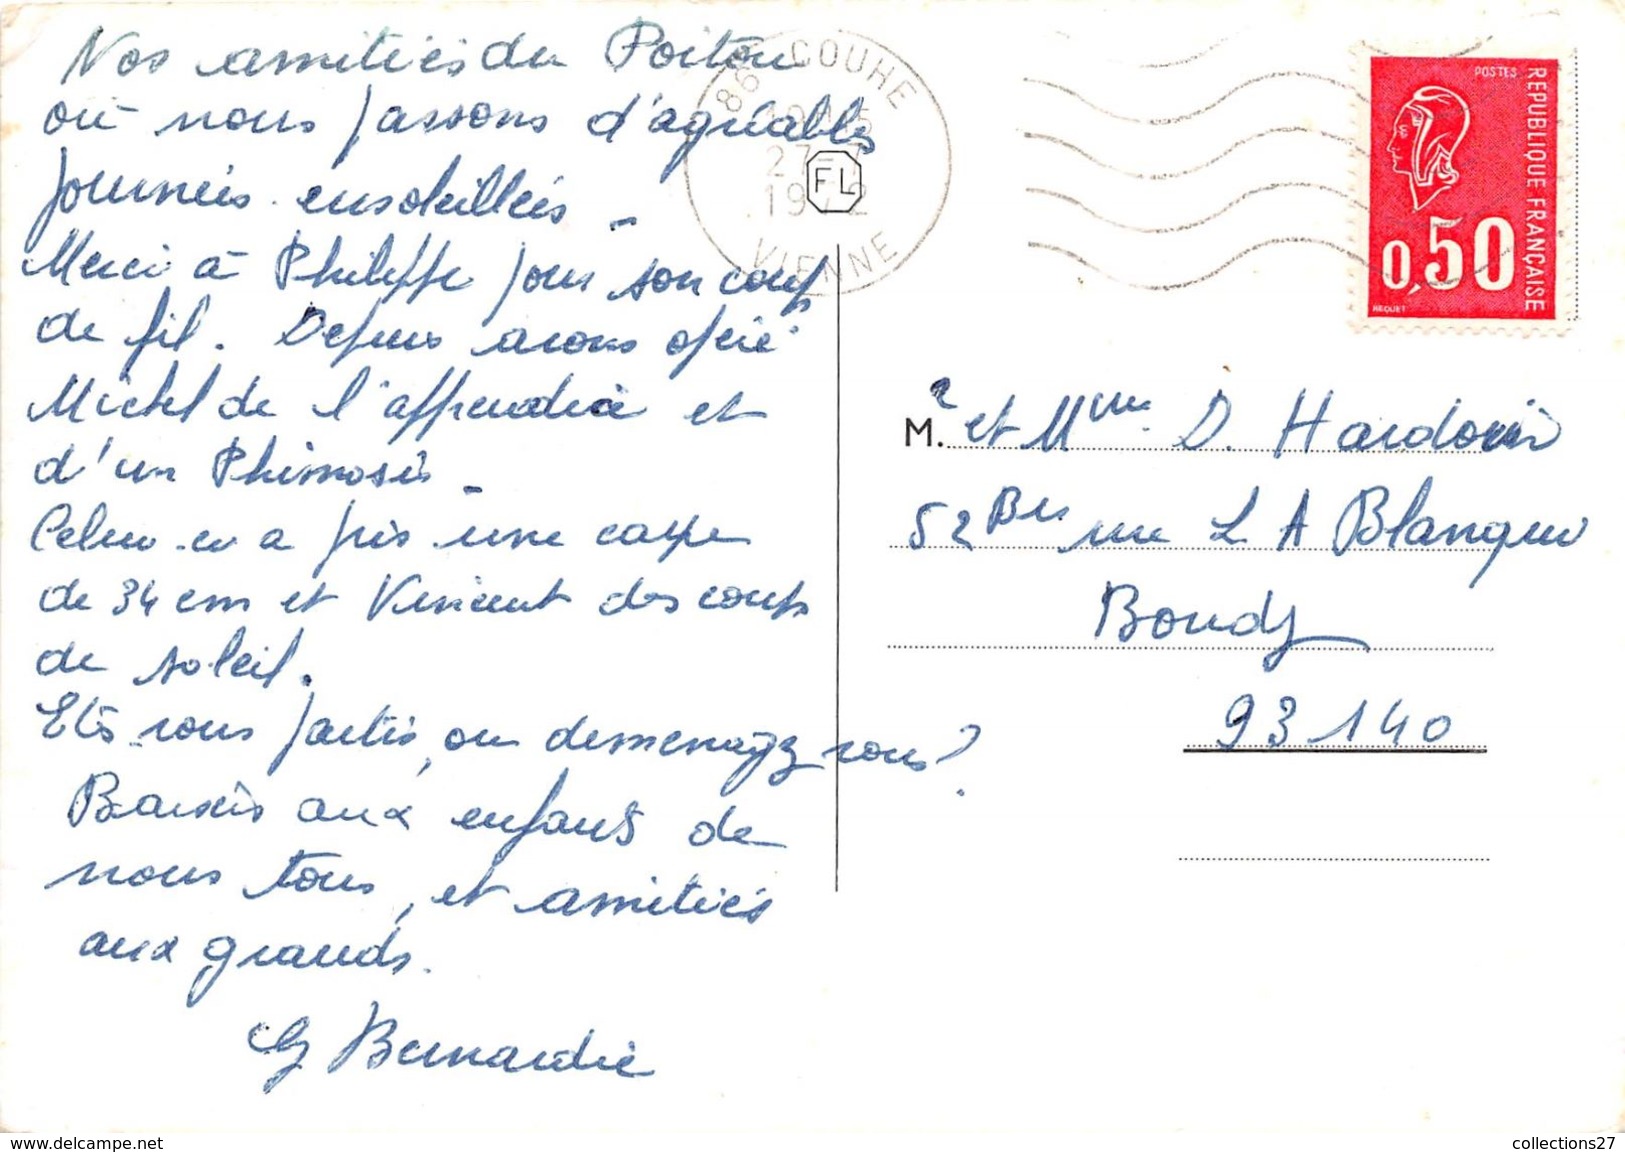 Nos amitiés du Poitou
où nous passons d'agréables
journées ensoleillées -
Merci à Philippe pour son coup
de fil. Depuis avons opéré
Michel de l'appendice et
d'un Phimosis -
Celui-ci a pris une carpe
de 34 cm et Vincent des coups
de soleil.
Etes-vous partis, ou demenagez vous?
Baisers aux enfants de
nous tous, et amitiés
aux grands.
Bernardie
86 COUHE
27-7
1972
VIENNE
FL
POSTES
REPUBLIQUE FRANÇAISE
0,50
BEQUET
Mr et Mme D. Hardouin
52 Bis rue L A Blanqui
Bondy
93140
www.delcampe.net
collections27